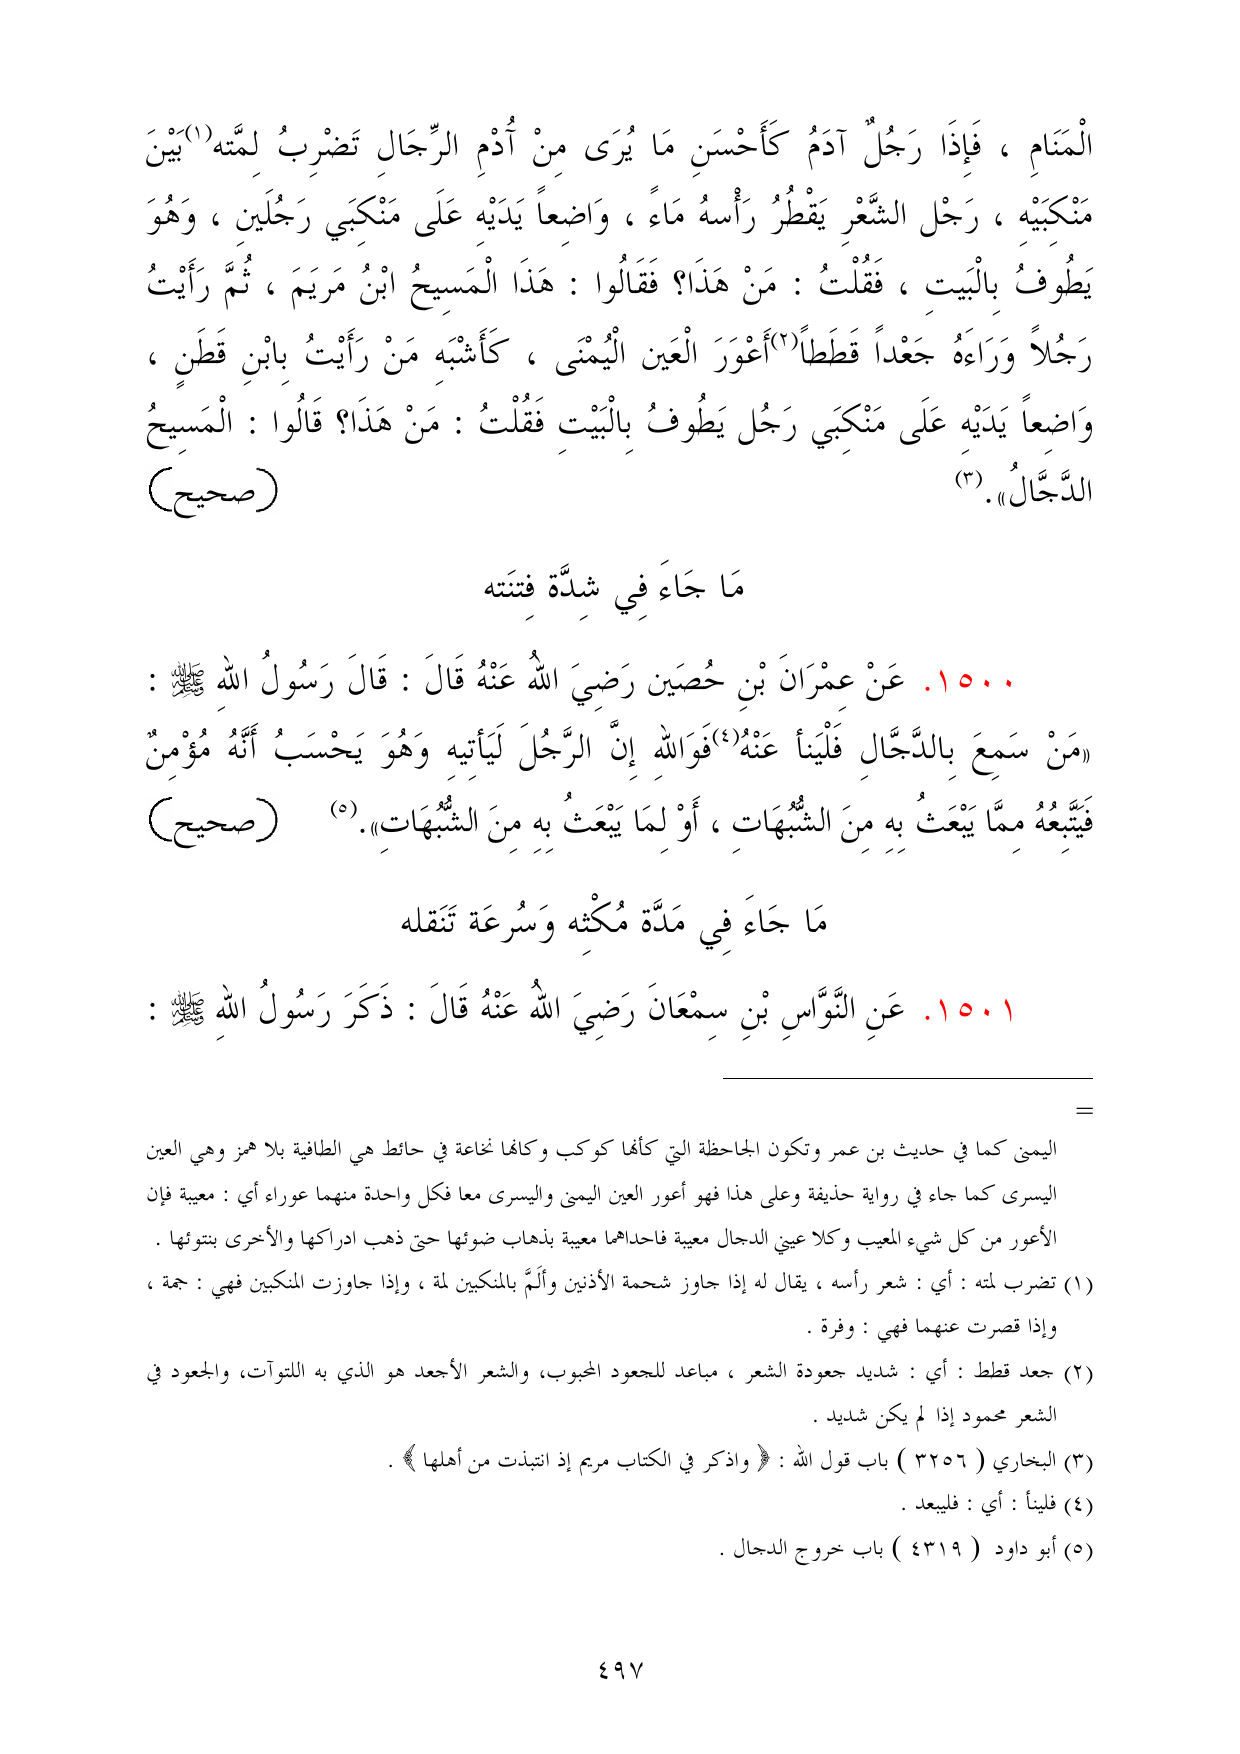 الْمَنَامِ ، فَإِذَا رَجُلٌ آدَمُ كَأَحْسَنِ مَا يُرَى مِنْ أُدْمِ الرِّجَالِ تَضْرِبُ لِمَّته(١)بَيْنَ
مَنْكِبَيْهِ ، رَجْل الشَّعْرِ يَقْطُرُ رَأْسهُ مَاءً ، وَاضِعاً يَدَيْهِ عَلَى مَنْكِبَي رَجُلَينِ ، وَهُوَ
يَطُوفُ بِالْبَيتِ ، فَقُلْتُ : مَنْ هَذَا؟ فَقَالُوا : هَذَا الْمَسِيحُ ابْنُ مَريَمَ ، ثُمَّ رَأَيْتُ
رَجُلاً وَرَاءَهُ جَعْداً قَطَطاً(٢)أَعْوَرَ الْعَين الْيُمْنَى ، كَأَشْبَهِ مَنْ رَأَيْتُ بِابْنِ قَطَنٍ ،
وَاضِعاً يَدَيْهِ عَلَى مَنْكِبَي رَجُل يَطُوفُ بِالْبَيْتِ فَقُلْتُ : مَنْ هَذَا؟ قَالُوا : الْمَسِيحُ
الدَّجَّالُ».(٣) (صحيح)
مَا جَاءَ فِي شِدَّة فِتنَته
١٥٠٠. عَنْ عِمْرَانَ بْنِ حُصَين رَضِيَ اللهُ عَنْهُ قَالَ : قَالَ رَسُولُ اللهِ ﷺ :
«مَنْ سَمِعَ بِالدَّجَّالِ فَلْيَنأ عَنْهُ(٤)فَوَاللهِ إِنَّ الرَّجُلَ لَيَأتِيهِ وَهُوَ يَحْسَبُ أَنَّهُ مُؤْمِنٌ
فَيَتَّبِعُهُ مِمَّا يَبْعَثُ بِهِ مِنَ الشُّبُهَاتِ ، أَوْ لِمَا يَبْعَثُ بِهِ مِنَ الشُّبُهَاتِ».(٥) (صحيح)
مَا جَاءَ فِي مَدَّة مُكْثِه وَسُرعَة تَنَقله
١٥٠١. عَنِ النَّوَّاسِ بْنِ سِمْعَانَ رَضِيَ اللهُ عَنْهُ قَالَ : ذَكَرَ رَسُولُ اللهِ ﷺ :
=
اليمنى كما في حديث بن عمر وتكون الجاحظة التي كأنها كوكب وكانها نخاعة في حائط هي الطافية بلا همز وهي العين
اليسرى كما جاء في رواية حذيفة وعلى هذا فهو أعور العين اليمنى واليسرى معا فكل واحدة منهما عوراء أي : معيبة فإن
الأعور من كل شيء المعيب وكلا عيني الدجال معيبة فاحداهما معيبة بذهاب ضوئها حتى ذهب ادراكها والأخرى بنتوئها .
(١) تضرب لمته : أي : شعر رأسه ، يقال له إذا جاوز شحمة الأذنين وألَمَّ بالمنكبين لمة ، وإذا جاوزت المنكبين فهي : جمة ،
وإذا قصرت عنهما فهي : وفرة .
(٢) جعد قطط : أي : شديد جعودة الشعر ، مباعد للجعود المحبوب، والشعر الأجعد هو الذي به اللتوآت، والجعود في
الشعر محمود إذا لم يكن شديد .
(٣) البخاري ( ٣٢٥٦ ) باب قول الله : ﴿ واذكر في الكتاب مريم إذ انتبذت من أهلها ﴾ .
(٤) فلينأ : أي : فليبعد .
(٥) أبو داود ( ٤٣١٩ ) باب خروج الدجال .
٤٩٧